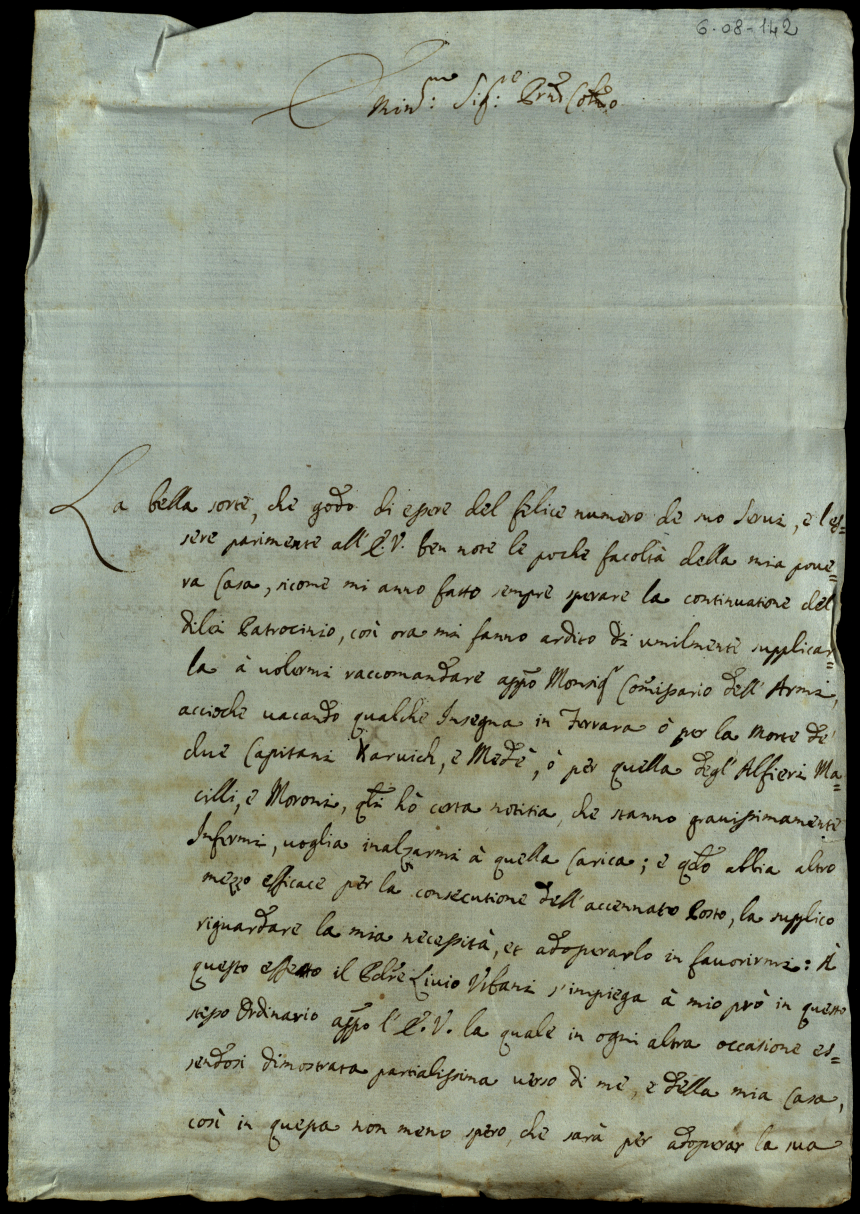 6-08-142
Sig:re Prñe Colmo
La bella sorte, che godo di essere del felice numero de suo Serui, e l'es=
sere parimente all' E.V. ben note le poche facoltà della mia poue=
ra Casa, sicome mi anno fatto sempre sperare la continuatione del
dilei Patrocinio, così ora mi fanno ardito di umilmente supplicar=
la à uolermi raccomandare appo Monsigr Comissario dell' Armi,
accioche uacando qualche Insegna in Ferrara ò per la Morte de'
due Capitani Karuich, e Medè, ò per quella degl' Alfieri Ma=
cilli, e Moroni, qli hò certa notitia, che stanno grauissimamente
Infermi, uoglia inalzarmi à quella Carica; e qdo abbia altro
mezzo efficace per la consecutione dell' accennato Posto, la supplico
riguardare la mia necessità, et adoperarlo in fauorirmi: A
questo effetto il Pdre Liuio Vrbani s'impiega à mio prò in questo
stesso Ordinario appo l' E.V. la quale in ogni altra occasione es=
sendosi dimostrata partialissima uerso di me, e della mia Casa,
così in questa non meno spero, che sarà per adoperar la sua